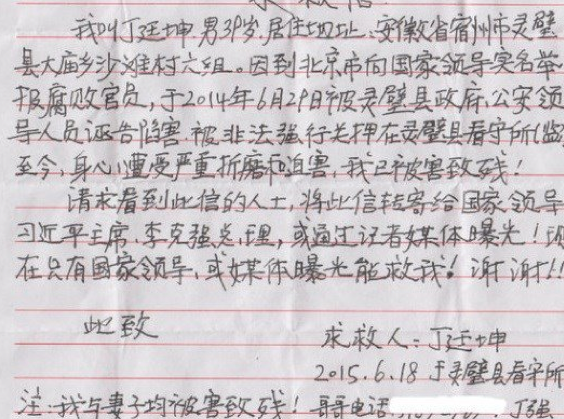 求救信
我叫丁廷坤男39岁.居住地址:安徽省宿州市灵璧
县大庙乡沙滩村六组。因到北京市向国家领导实名举
报腐败官员,于2014年6月29日被灵璧县政府.公安领
导人员诬告陷害被非法强行关押在灵璧县看守所(监
至今,身心遭受严重折磨和迫害,我已被害致残!
请求看到此信的人士,将此信转寄给国家领导
习近平主席.李克强总理,或通过记者媒体曝光!现
在只有国家领导,或媒体曝光能救我!谢谢!!
此致
求救人:丁廷坤
2015.6.18于灵璧县看守所
注:我与妻子均被害致残!哥哥电话 丁强